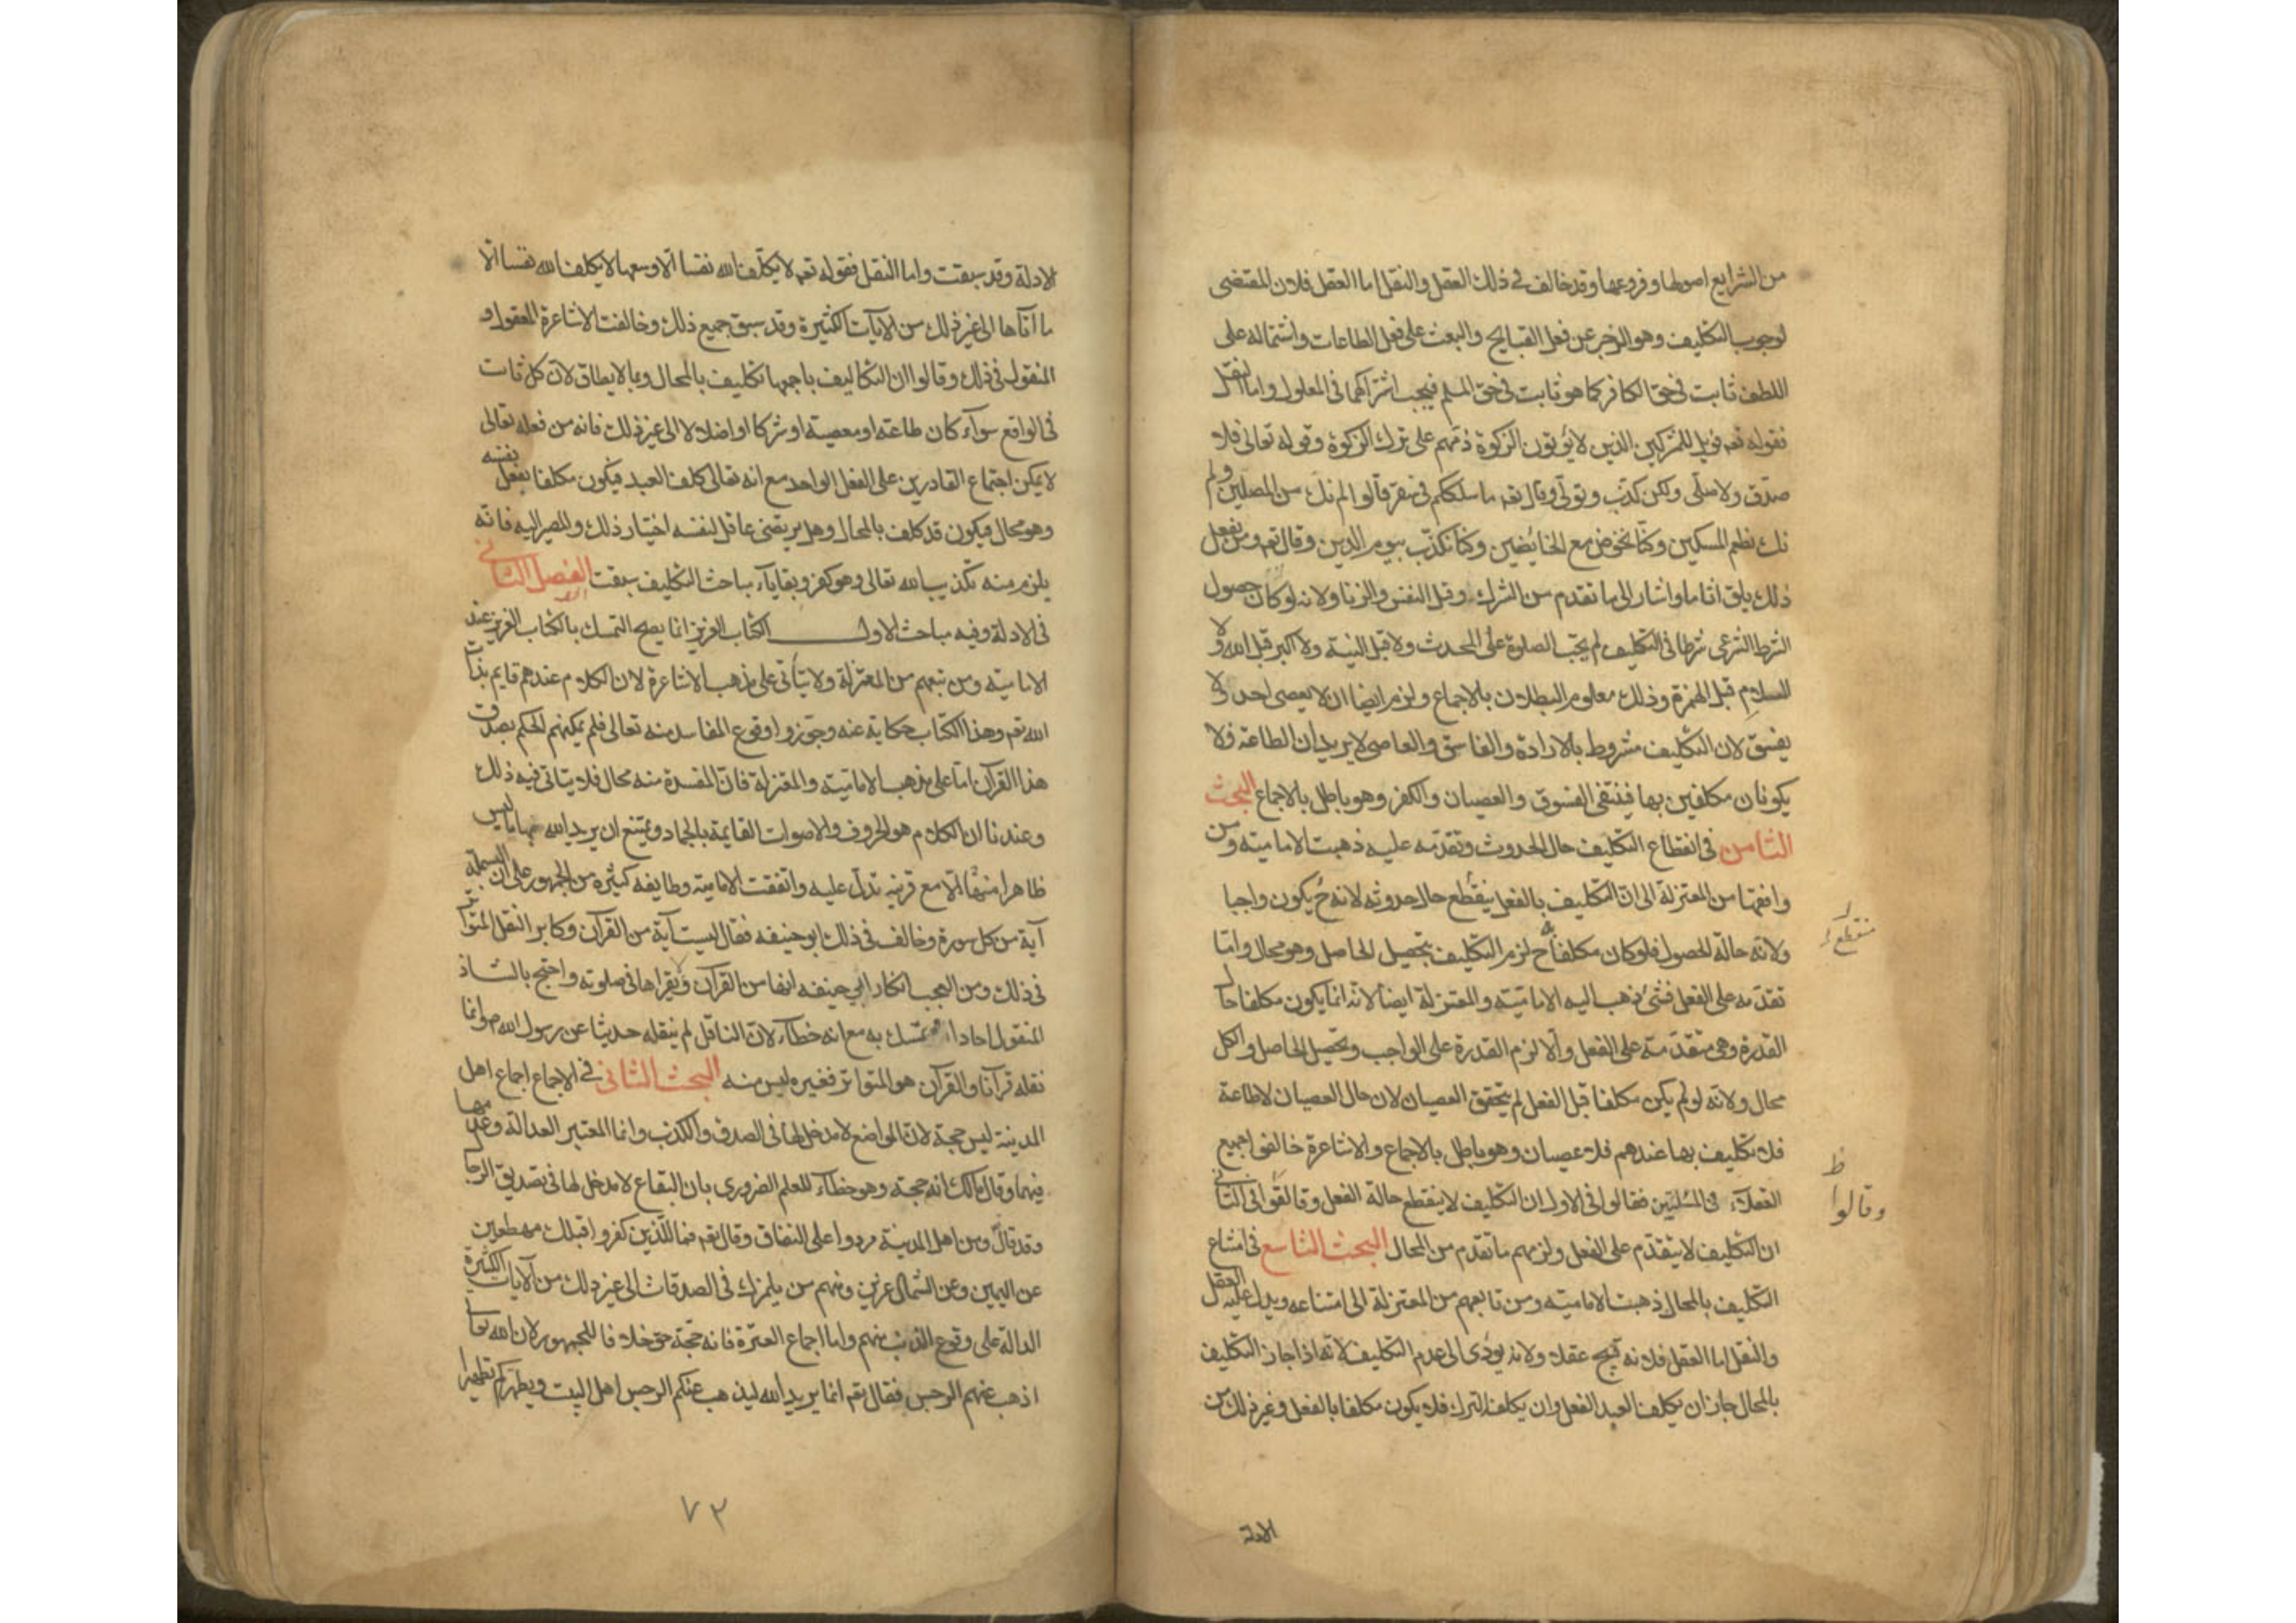 من الشرايع اصولها وفروعها وقد خالف في ذلك العقل والنقل اما العقل فلان المقتضى
لوجوب التكليف وهو الزجر عن فعل القبايح والبعث على فعل الطاعات واشتماله على
اللطف ثابت في حق الكافر كما هو ثابت في حق المسلم فيجب اشتراكهما في المعلول واما النقل
فقوله تعه فويل للمشركين الذين لا يؤتون الزكوة ذمهم على ترك الزكوة وقوله تعالى فلا
صدق ولا صلى ولكن كذب وتولى وقال تعه ما سلككم في سقر قالوا لم نك من المصلين ولم
نك نطعم المسكين وكنا نخوض مع الخائضين وكنا نكذب بيوم الدين وقال تعه ومن يفعل
ذلك يلق اثاما واشار الى ما تقدم من الشرك وقتل النفس والزنا ولانه لو كان حصول
الشرط الشرعى شرطا في التكليف لم يجب الصلوة على المحدث ولا قبل النية ولا اكبر قبل الله ولا
اللام قبل الهمزة وذلك معلوم البطلان بالاجماع ولزم ايضا ان لا يعصى احد ولا
يفسق لان التكليف مشروط بالارادة والفاسق والعاصى لا يريدان الطاعة فلا
يكونان مكلفين بها فينتفى الفسوق والعصيان والكفر وهو باطل بالاجماع البحث
الثامن في انقطاع التكليف حال الحدوث وتقدمه عليه ذهبت الامامية ومن
وافقها من المعتزلة الى ان التكليف بالفعل ينقطع حال حدوثه لانه ح يكون واجبا
منقطع
ولانه حالة الحصول فلو كان مكلفا به ح لزم التكليف بتحصيل الحاصل وهو محال واما
تقدمه على الفعل فشئ ذهب اليه الامامية والمعتزلة ايضا لانه انما يكون مكلفا حال
القدرة وهى متقدمة على الفعل والا لزم القدرة على الواجب وتحصيل الحاصل والكل
محال ولانه لو لم يكن مكلفا قبل الفعل لم يتحقق العصيان لان حال العصيان لا طاعة
فلا تكليف بها عندهم فلا عصيان وهو باطل بالاجماع والاشاعرة خالفوا جميع
العقلاء في المسئلتين فقالوا في الاول ان التكليف لا ينقطع حالة الفعل وقالقوا في الثانى
ظ
وقالوا
ان التكليف لا يتقدم على الفعل ولزمهم ما تقدم من المحال البحث التاسع في امتناع
التكليف بالمحال ذهبت الامامية ومن تابعهم من المعتزلة الى امتناعه ويدل عليه العقل
والنقل اما العقل فلانه قبيح عقلا ولانه يؤدى الى عدم التكليف لانه اذا جاز التكليف
بالمحال جاز ان يكلف العبد الفعل وان يكلف الترك فلا يكون مكلفا بالفعل وغير ذلك من
الادلة
الادلة وقد سبقت واما النقل فقوله تعه لا يكلف الله نفسا الا وسعها لا يكلف الله نفسا الا
ما آتاها الى غير ذلك من الايات الكثيرة وقد سبق جميع ذلك وخالفت الاشاعرة المعقول و
المنقول في ذلك وقالوا ان التكاليف باجمعها تكليف بالمحال وبما لا يطاق لان كل ثابت
في الواقع سواء كان طاعة او معصية او شركا او اضلالا الى غير ذلك فانه من فعله تعالى
لا يمكن اجتماع القادرين على الفعل الواحد مع انه تعالى كلف العبد فيكون مكلفا بفعل نفسه
وهو محال فيكون قد كلف بالمحال وهل يرتضى عاقل لنفسه اختيار ذلك والمصير اليه فانه
يلزم منه تكذيب الله تعالى وهو كفر وبقايا مباحث التكليف سبقت الفصل الثانى
في الادلة وفيه مباحث الاول الكتاب العزيز انما يصح التمسك بالكتاب العزيز عند
الامامية ومن تبعهم من المعتزلة ولا يتأتى على مذهب الاشاعرة لان الكلام عندهم قايم بذات
الله تعه وهذا الكتاب حكاية عنه وجوزوا وقوع المفاسد منه تعالى فلم يمكنهم الحكم بصدق
هذا القرآن اما على مذهب الامامية والمعتزلة فان المفسدة منه محال فلا يتاتى فيه ذلك
وعندنا ان الكلام هو الحروف والاصوات القايمة بالجماد ويمتنع ان يريد الله بها ما ليس
ظاهرا منها الا مع قرينة تدل عليه واتفقت الامامية وطايفة كثيرة من الجمهور على ان البسملة
آية من كل سورة وخالف في ذلك ابو حنيفه فقال ليست آية من القرآن وكابر النقل المتواتر
في ذلك ومن العجب انكار ابي حنيفه انها من القرآن ويقراها في صلوته واحتج بالشاذ
المنقول احادا وتمسك به مع انه خطاء لان الناقل لم ينقله حديثا عن رسول الله ص وانما
نقله قرآنا والقرآن هو المتواتر فغيره ليس منه البحث الثانى في الاجماع اجماع اهل
المدينة ليس حجة لان المواضع لا مدخل لها في الصدق والكذب وانما المعتبر العدالة وعدمها
فيهما وقال مالك انه حجة وهو خطاء للعلم الضرورى بان البقاع لا مدخل لها في تصديق الرجال
وقد قال ومن اهل المدينة مردوا على النفاق وقال تعه فما للذين كفروا قبلك مهطعين
عن اليمين وعن الشمال عزين ومنهم من يلمزك في الصدقات الى غير ذلك من الايات الكثيرة
الدالة على وقوع الذنب منهم واما اجماع العترة فانه حجة حق خلافا للجمهور لان الله تعالى
اذهب عنهم الرجس فقال تعه انما يريد الله ليذهب عنكم الرجس اهل البيت ويطهركم تطهيرا
٧٢